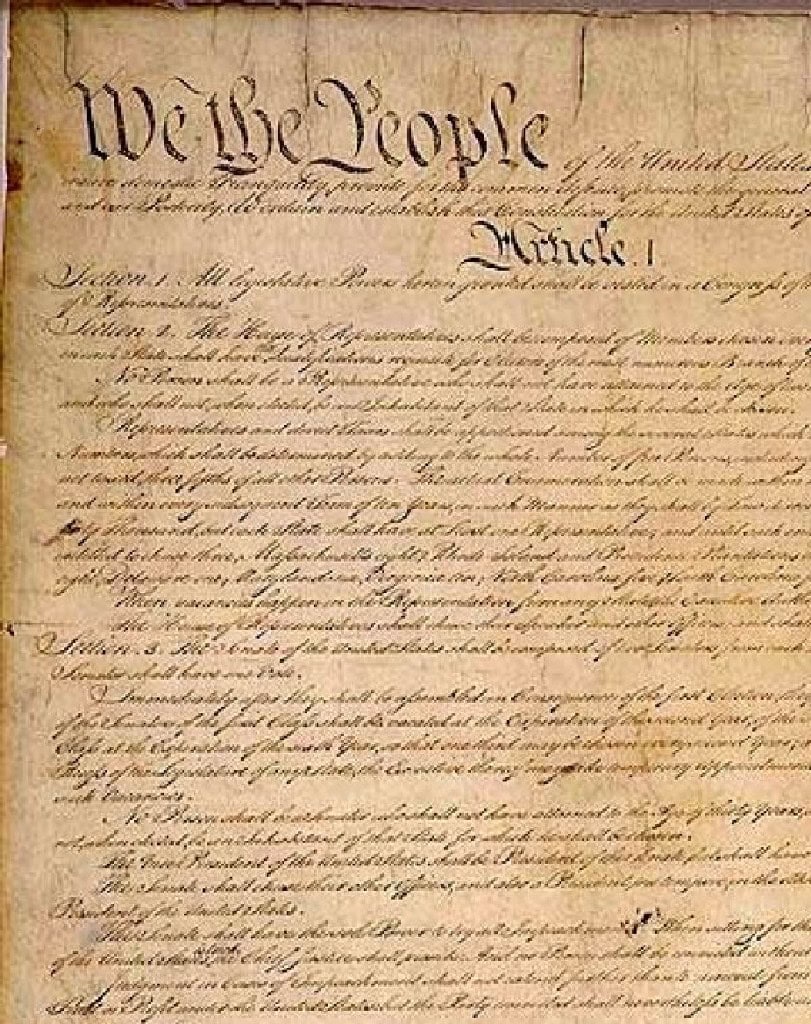 We the People of the United States
insure domestic Tranquility, provide for the common defence, promote the general
and our Posterity, do ordain and establish this Constitution for the United States of
Article. I.
Section. 1. All legislative Powers herein granted shall be vested in a Congress of
of Representatives.
Section. 2. The House of Representatives shall be composed of Members chosen
in each State shall have Qualifications requisite for Electors of the most numerous Branch of
No Person shall be a Representative who shall not have attained to the Age of
and who shall not, when elected, be an Inhabitant of that State in which he shall be chosen.
Representatives and direct Taxes shall be apportioned among the several States which
Numbers, which shall be determined by adding to the whole Number of free Persons, including
not taxed, three fifths of all other Persons. The actual Enumeration shall be made within
and within every subsequent Term of ten Years, in such Manner as they shall by Law
thirty Thousand, but each State shall have at Least one Representative; and until such
entitled to chuse three, Massachusetts eight, Rhode Island and Providence Plantations
eight, Delaware one, Maryland six, Virginia ten, North Carolina five, South Carolina
When vacancies happen in the Representation from any State, the Executive
The House of Representatives shall chuse their Speaker and other Officers; and shall
Section. 3. The Senate of the United States shall be composed of two Senators from each
Senator shall have one Vote.
Immediately after they shall be assembled in Consequence of the first Election, they
of the Senators of the first Class shall be vacated at the Expiration of the second Year, of the
Class at the Expiration of the sixth Year, so that one third may be chosen every second Year;
Recess of the Legislature of any State, the Executive thereof may make temporary Appointments
such Vacancies.
No Person shall be a Senator who shall not have attained to the Age of thirty Years,
not, when elected, be an Inhabitant of that State for which he shall be chosen.
The Vice President of the United States shall be President of the Senate, but shall have
The Senate shall chuse their other Officers, and also a President pro tempore, in the
President of the United States.
The Senate shall have the sole Power to try all Impeachments. When sitting for
of the United States, the Chief Justice shall preside: And no Person shall be convicted without
Judgment in Cases of Impeachment shall not extend further than to removal from
Trust or Profit under the United States: but the Party convicted shall nevertheless be liable